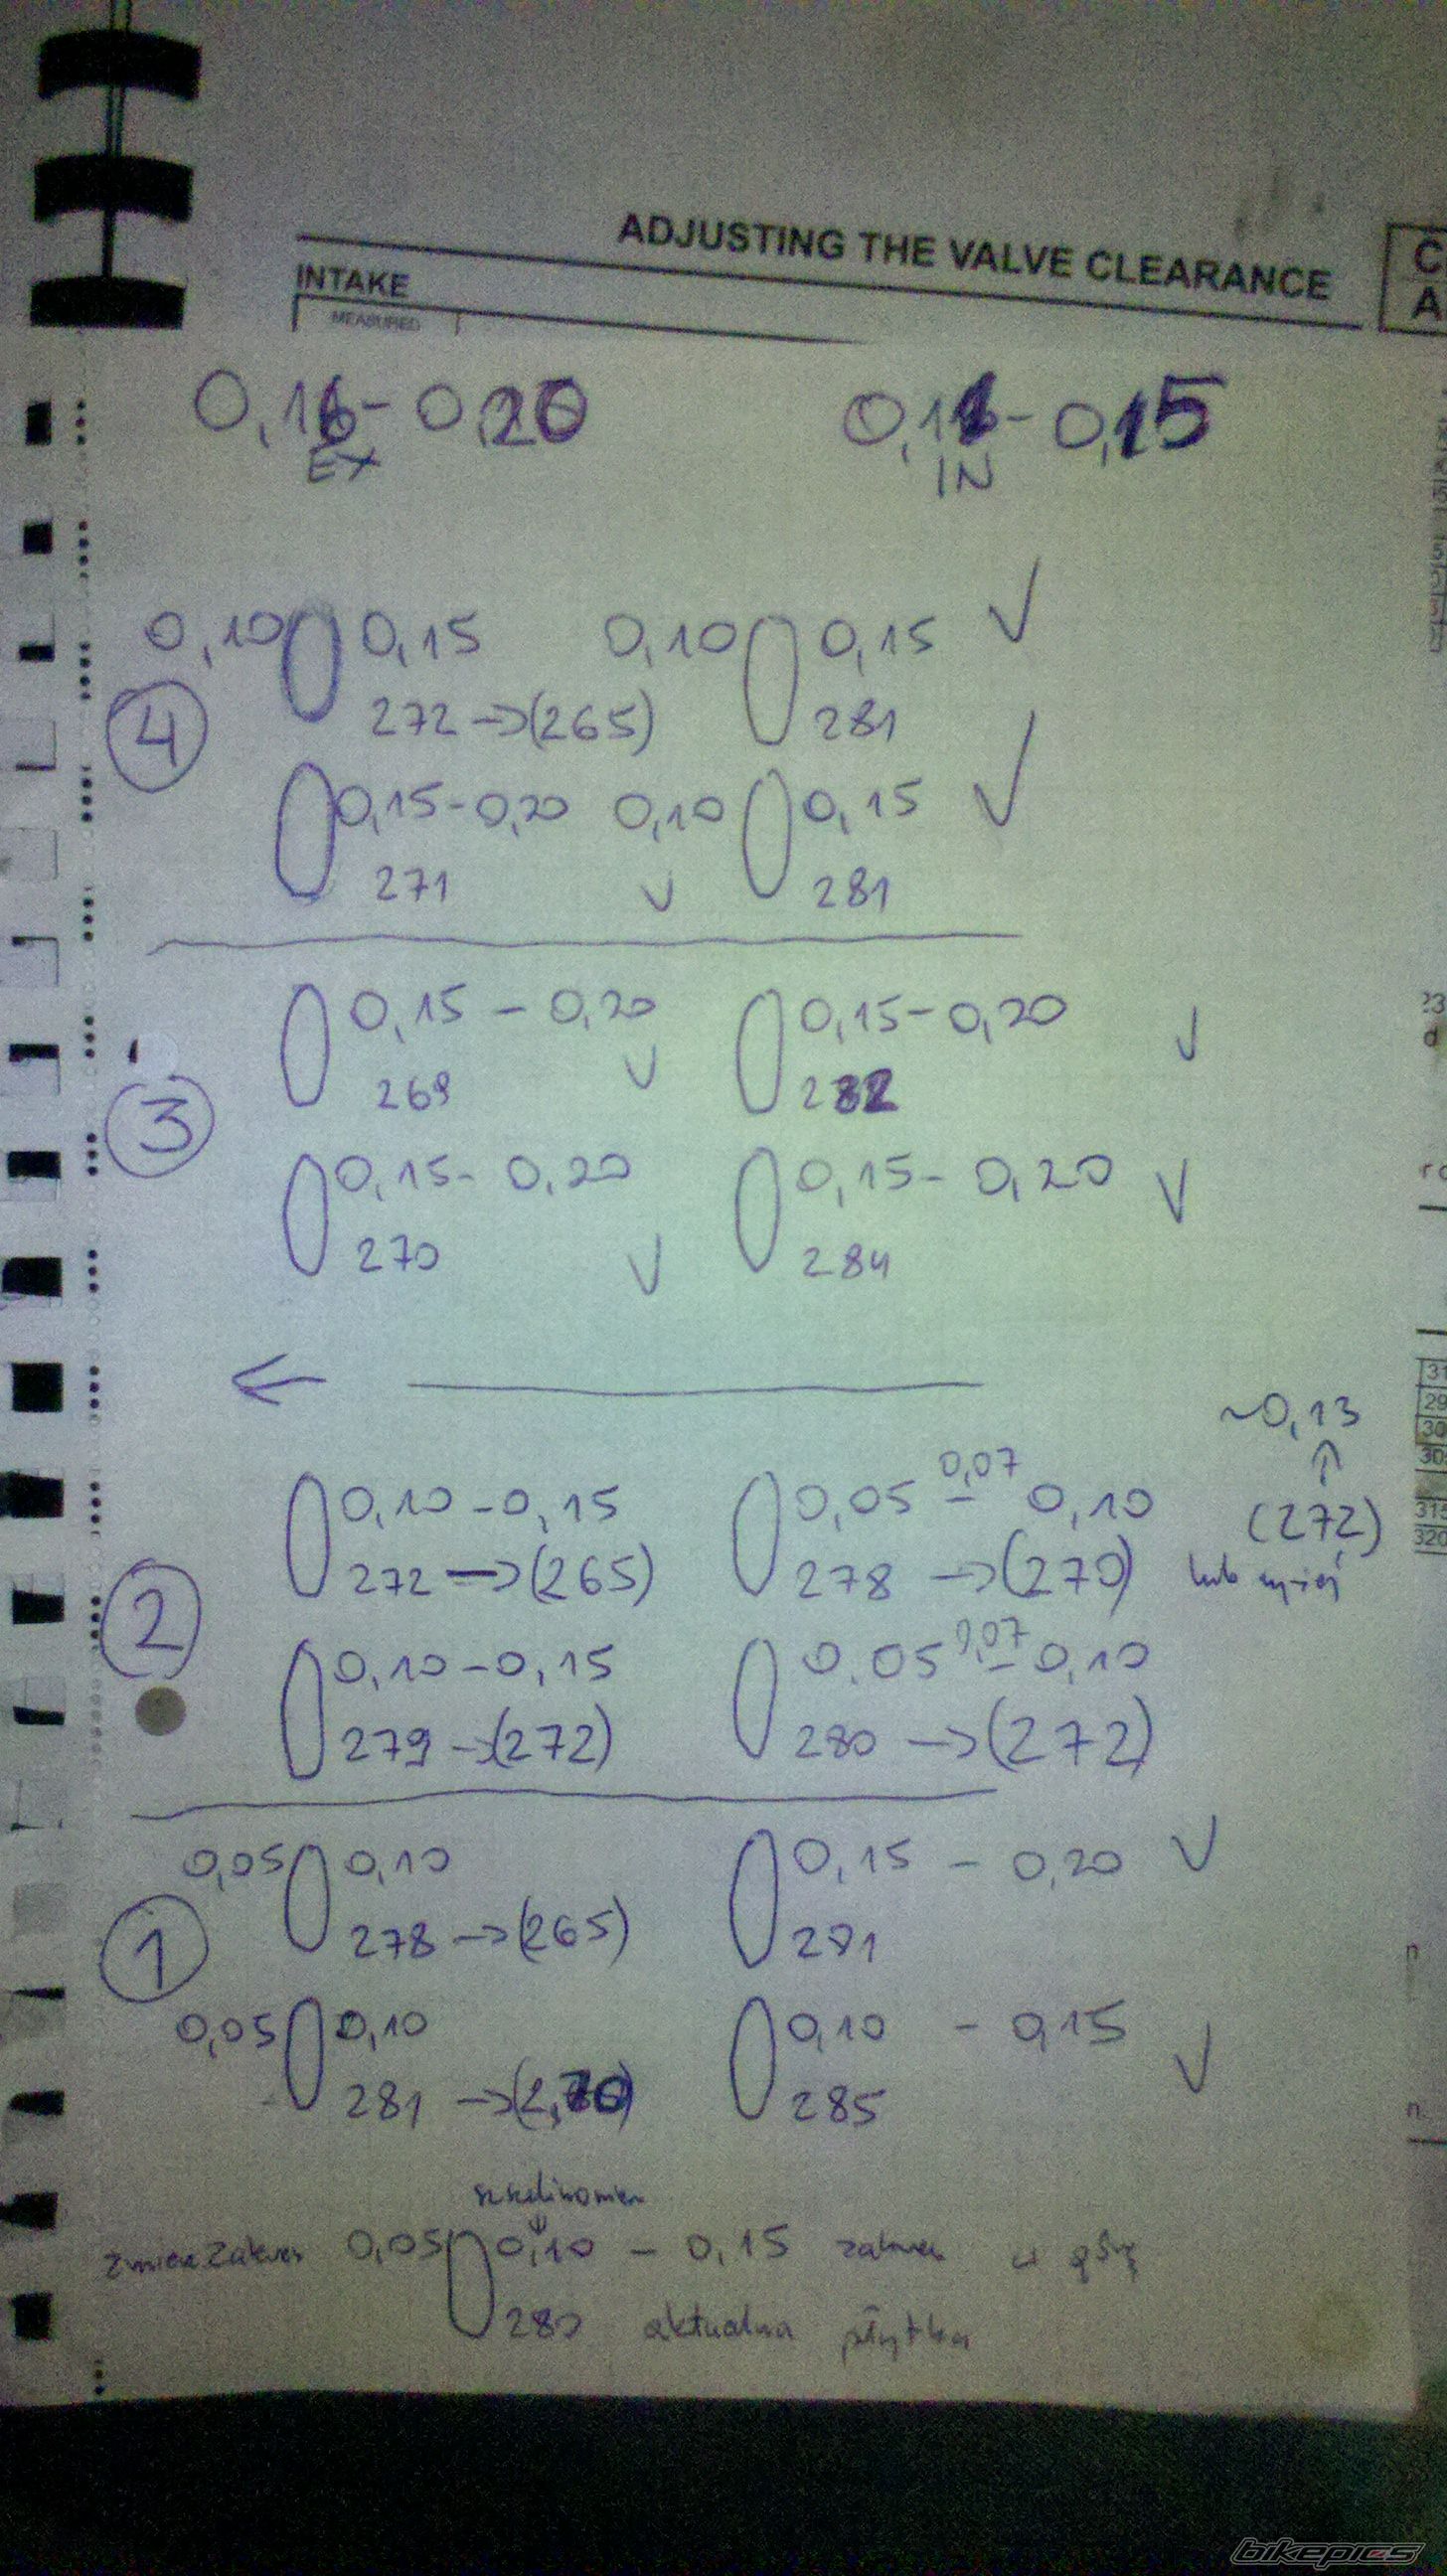 ADJUSTING THE VALVE CLEARANCE
C
A
INTAKE
MEASURED
0,16-0,20 0,11-0,15
EX IN
0,10 0,15 0,10 0,15 √
4
272→(265) 281
0,15-0,20 0,10 0,15 √
271 √ 281
0,15-0,20 0,15-0,20 √
269 √ 282
3
0,15-0,20 0,15-0,20 √
270 √ 284
←
~0,13
↑
0,07
0,10-0,15 0,05-0,10 (272)
272→(265) 278→(270) lub
2
0,07
0,10-0,15 0,05-0,10
279→(272) 280→(272)
0,05 0,10 0,15-0,20 √
278→(265) 291
1
0,05 0,10 0,10-0,15 √
281→(2,70) 285
0,05 0,10-0,15
280 aktualna płytka
bikepics